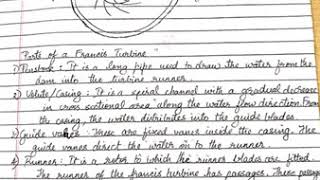 Parts of a Francis Turbine"
1) Penstock : It is a long pipe used to draw the water from the
dam into the turbine runner.
2) Volute/Casing : It is a spiral channel with a gradual decrease
in cross sectional area along the water flow direction. From
the casing, the water distributes into the guide blades.
3) Guide vanes : These are fixed vanes inside the casing. The
guide vanes direct the water on to the runner.
4) Runner : It is a rotor to which the runner blades are fitted.
The runner of the francis turbine has passages. These passages